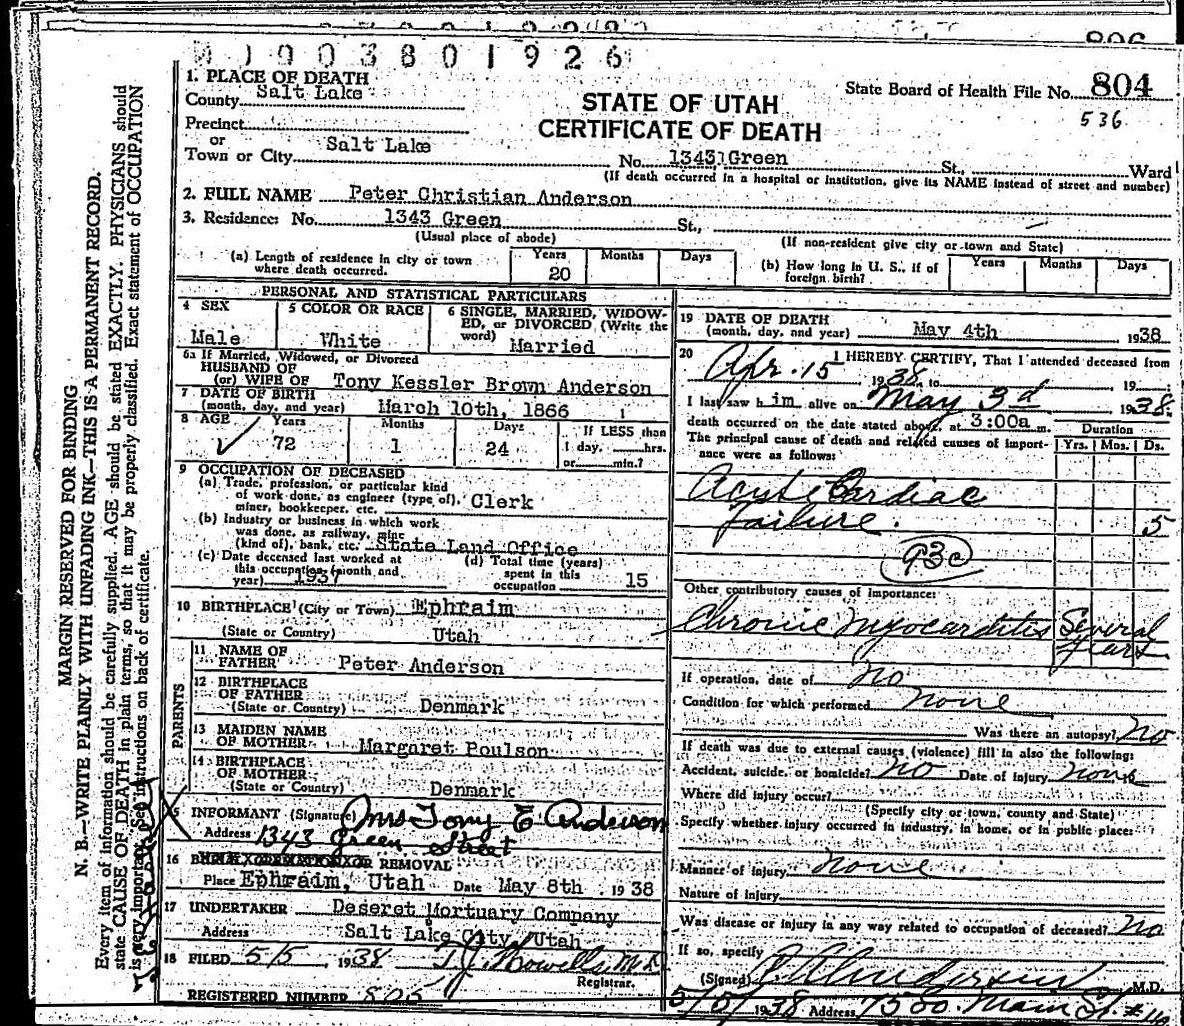 1903801926
806
1. PLACE OF DEATH
County Salt Lake
STATE OF UTAH
CERTIFICATE OF DEATH
State Board of Health File No. 804
536
Precinct
or
Town or City Salt Lake No. 1343 Green St., Ward
(If death occurred in a hospital or institution, give its NAME instead of street and number)
2. FULL NAME Peter Christian Anderson
3. Residence: No. 1343 Green St.,
(Usual place of abode)
(If non-resident give city or town and State)
(a) Length of residence in city or town where death occurred. Years 20 Months Days
(b) How long in U. S., if of foreign birth? Years Months Days
PERSONAL AND STATISTICAL PARTICULARS
4 SEX
Male
5 COLOR OR RACE
White
6 SINGLE, MARRIED, WIDOWED, or DIVORCED (Write the word)
Married
6a If Married, Widowed, or Divorced
HUSBAND OF
(or) WIFE OF Tony Kessler Brown Anderson
7 DATE OF BIRTH
(month, day, and year) March 10th, 1866
8 AGE Years 72 Months 1 Days 24
If LESS than
1 day, hrs.
or min.?
9 OCCUPATION OF DECEASED
(a) Trade, profession, or particular kind
of work done, as engineer (type of),
miner, bookkeeper, etc. Clerk
(b) Industry or business in which work
was done, as railway, mine
(kind of), bank, etc. State Land Office
(c) Date deceased last worked at
this occupation (month and
year) 1937
(d) Total time (years)
spent in this
occupation 15
10 BIRTHPLACE (City or Town) Ephraim
(State or Country) Utah
PARENTS
11 NAME OF
FATHER Peter Anderson
12 BIRTHPLACE
OF FATHER
(State or Country) Denmark
13 MAIDEN NAME
OF MOTHER Margaret Poulson
14 BIRTHPLACE
OF MOTHER
(State or Country) Denmark
15 INFORMANT (Signature) Mrs Tony E Anderson
Address 1343 Green Street
16 BURIAL, CREMATION, OR REMOVAL
Place Ephraim, Utah Date May 8th 1938
17 UNDERTAKER Deseret Mortuary Company
Address Salt Lake City, Utah
18 FILED 5/5 1938 T. J. Howells M.D.
Registrar.
REGISTERED NUMBER 805
19 DATE OF DEATH
(month, day, and year) May 4th 1938
20 I HEREBY CERTIFY, That I attended deceased from
Apr. 15, 1938, to 19
I last saw him alive on May 3d 1938
death occurred on the date stated above, at 3:00a m.
The principal cause of death and related causes of importance were as follows:
Duration
Yrs. Mos. Ds.
Acute Cardiac
Failure. 5
93c
Other contributory causes of importance:
Chronic Myocarditis Several
years
If operation, date of No
Condition for which performed none
Was there an autopsy? No
If death was due to external causes (violence) fill in also the following:
Accident, suicide, or homicide? No Date of injury None
Where did injury occur?
(Specify city or town, county and State)
Specify whether injury occurred in industry, in home, or in public place:
Manner of injury none
Nature of injury
Was disease or injury in any way related to occupation of deceased? No
If so, specify
(Signed) Anderson M.D.
5/5/1938 Address Main St.
MARGIN RESERVED FOR BINDING
N. B.—WRITE PLAINLY WITH UNFADING INK—THIS IS A PERMANENT RECORD.
Every item of information should be carefully supplied. AGE should be stated EXACTLY. PHYSICIANS should
state CAUSE OF DEATH in plain terms, so that it may be properly classified. Exact statement of OCCUPATION
is very important. See instructions on back of certificate.